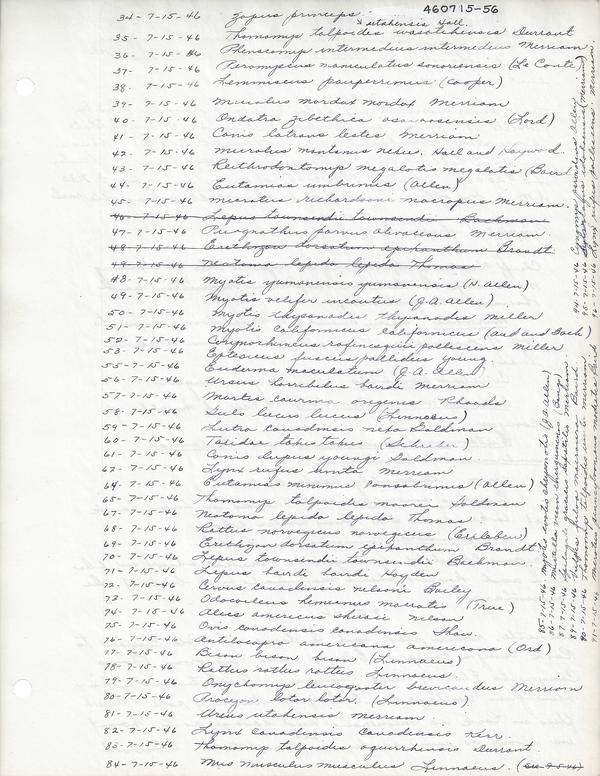 460715-56
34- 7-15-46 Zapus princeps utahensis Hall.
35- 7-15-46 Thomomys talpoides wasatchensis Durrant
36- 7-15-46 Phenacomys intermedius intermedius Merriam.
37- 7-15-46 Peromyscus maniculatus sonoriensis (Le Conte)
38- 7-15-46 Lemmiscus pauperrimus (Cooper)
39- 7-15-46 Microtus mordax mordax Merriam
40- 7-15-46 Ondatra zibethica osoyoosensis (Lord)
41- 7-15-46 Canis latrans lestes Merriam
42- 7-15-46 Microtus montanus nexus Hall and Hayward.
43- 7-15-46 Reithrodontomys megalotis megalotis (Baird
44- 7-15-46 Eutamias umbrinus (Allen)
45- 7-15-46 Microtus richardsoni macropus Merriam.
46- 7-15-46 Lepus townsendii townsendii Bachman
47- 7-15-46 Perognathus parvus olivaceous Merriam.
48- 7-15-46 Erethizon dorsatum epixanthum Brandt
49- 7-15-46 Neotoma lepida lepida Thomas
48- 7-15-46 Myotis yumanensis yumanensis (H. Allen)
49- 7-15-46 Myotis velifer incautus (J.A. Allen)
50- 7-15-46 Myotis thysanodes thysanodes Miller
51- 7-15-46 Myotis californicus californicus (Aud and Bach)
52- 7-15-46 Corynorhinus rafinesquii pallescens Miller
53- 7-15-46 Eptesicus fuscus pallidus Young.
55- 7-15-46 Euderma maculatum (J.A. Allen)
56- 7-15-46 Ursus horribilus bairdi Merriam
57- 7-15-46 Martes caurina origenes Rhoads
58- 7-15-46 Gulo luscus luscus (Linnaeus)
59- 7-15-46 Lutra canadensis nexa Goldman
60- 7-15-46 Taxidea taxus taxus (Schreber)
61- 7-15-46 Canis lupus youngi Goldman
62- 7-15-46 Lynx rufus uinta Merriam
64- 7-15-46 Eutamias minimus consobrinus (Allen)
65- 7-15-46 Thomomys talpoides moorei Goldman
67- 7-15-46 Neotoma lepida lepida Thomas
68- 7-15-46 Rattus norvegicus norvegicus (Erxleben)
69- 7-15-46 Erethizon dorsatum epixanthum Brandt
70- 7-15-46 Lepus townsendii townsendii Bachman.
71- 7-15-46 Lepus bairdi bairdi Hayden
72- 7-15-46 Cervus canadensis nelsoni Bailey
73- 7-15-46 Odocoileus hemionus macrotis (True)
74- 7-15-46 Alces americus shirasi Nelson
75- 7-15-46 Ovis canadensis canadensis Shaw.
76- 7-15-46 Antilocapra americana americana (Ord)
77- 7-15-46 Bison bison bison (Linnaeus)
78- 7-15-46 Rattus rattus rattus Linnaeus.
79- 7-15-46 Onychomys leucogaster brevicaudus Merriam
80- 7-15-46 Procyon lotor lotor. (Linnaeus)
81- 7-15-46 Ursus utahensis Merriam
82- 7-15-46 Lynx canadensis canadensis Kerr.
83- 7-15-46 Thomomys talpoides oquirrhensis Durrant.
84- 7-15-46 Mus musculus musculus Linnaeus.
85- 7-15-46 Myotis evotis (J.A. Allen)
86- 7-15-46 Mustela vison
87- 7-15-46
89- 7-15-46 Vulpes macrourus Baird
90- 7-15-46 Thomomys talpoides Merriam
91- 7-15-46 Baird
94- 7-15-46 Allen
95- 7-15-46 (Merriam)
96- 7-15-46 Lynx rufus pallescens Merriam